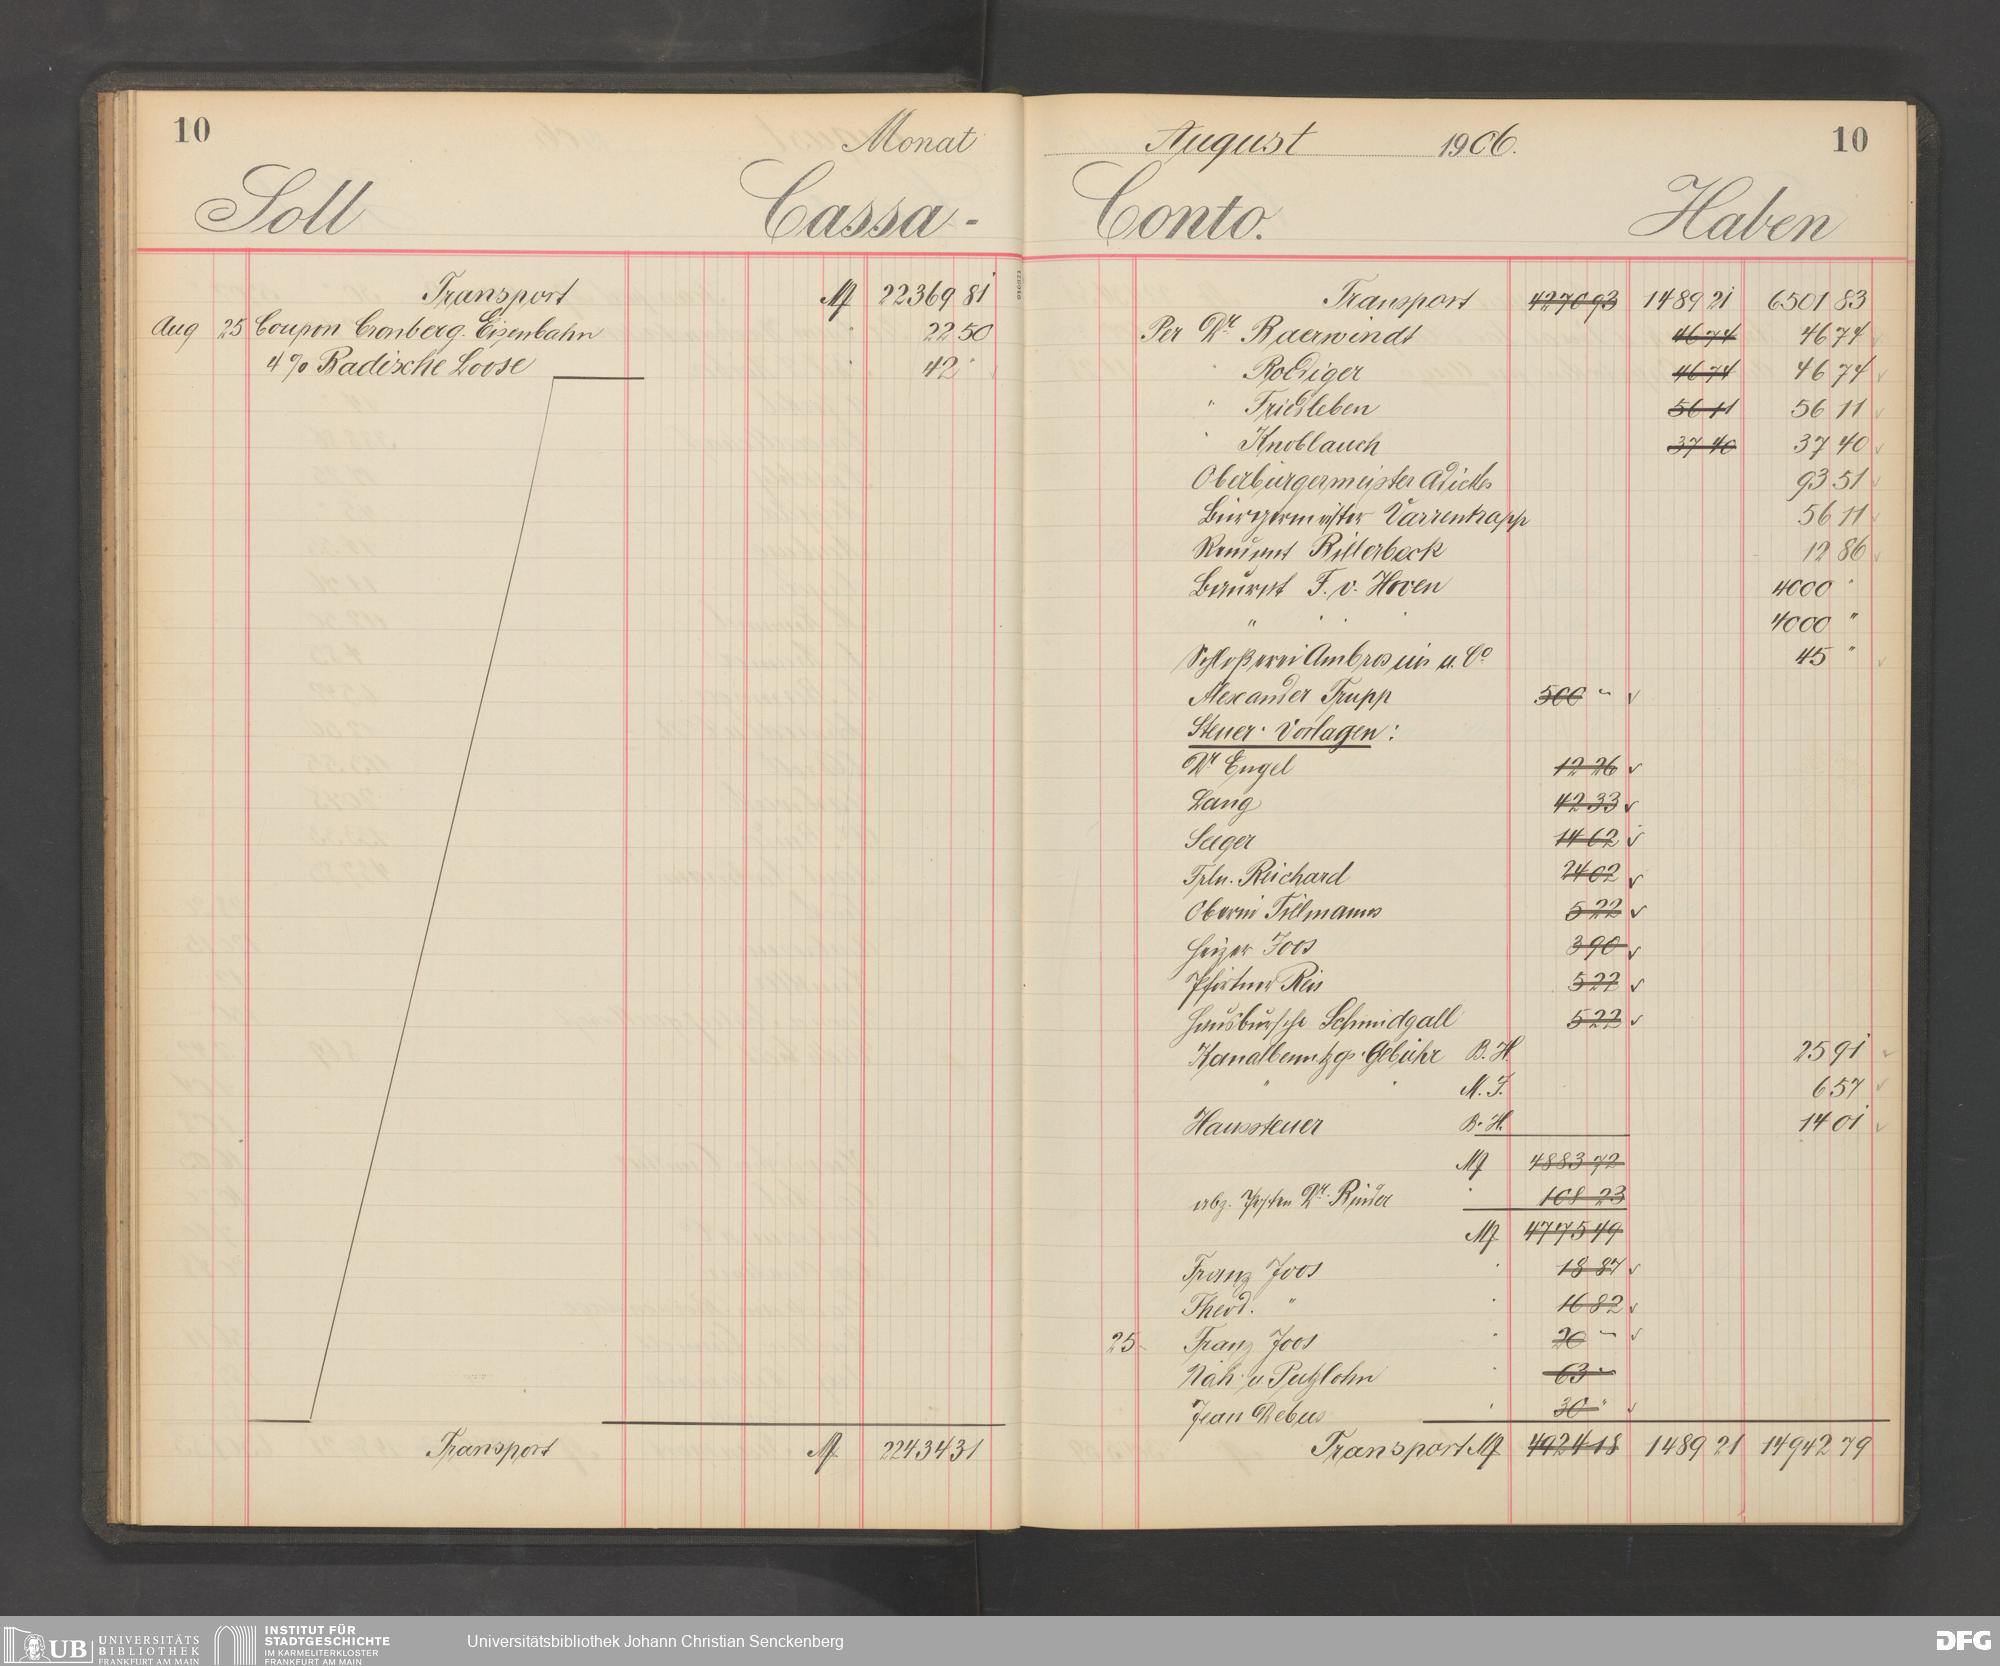 10
Monat
Soll
Cassa-
Transport M 22369 81
Aug 25 Coupon Cronberg. Eisenbahn " 22 50
4% Badische Loose " 42 "
Transport M 22434 31
August 1906.
10
Conto.
Haben
Transport 4270 93 1489 21 6501 83
Per Dr. Baerwindt 46 74 46 74
" Roediger 46 74 46 74
" Friedleben 56 11 56 11
" Knoblauch 37 40 37 40
Oberbürgermeister Adickes 93 51
Bürgermeister Varrentrapp 56 11
Bitterbeck 12 86
Baurat F. v. Hoven 4000 "
" " " 4000 "
Schloßerei Ambrosius u. Co 45 "
Alexander Trupp 500 -
Steuer-Vorlagen:
Dr Engel 12 26
Lang 42 33
Seeger 14 62
Frln. Reichard 24 02
Oberin Tillmanns 5 22
Heizer Joos 3 90
Pförtner Reis 5 22
Hausbursche Schmidgall 5 22
Kanalbenutzgs-Gebühr B. H. 25 91
" " M. J. 6 57
Haussteuer B. H. 14 01
M 4883 72
abz. Posten Dr. Binder " 108 23
M 4775 49
Franz Joos " 18 87
Theod. " " 16 82
25 Franz Joos " 20 -
Näh- u. Putzlohn " 63 -
Jean Debus " 30 "
Transport M 4924 18 1489 21 14942 79
UB UNIVERSITÄTS
BIBLIOTHEK
FRANKFURT AM MAIN
INSTITUT FÜR
STADTGESCHICHTE
IM KARMELITERKLOSTER
FRANKFURT AM MAIN
Universitätsbibliothek Johann Christian Senckenberg
DFG